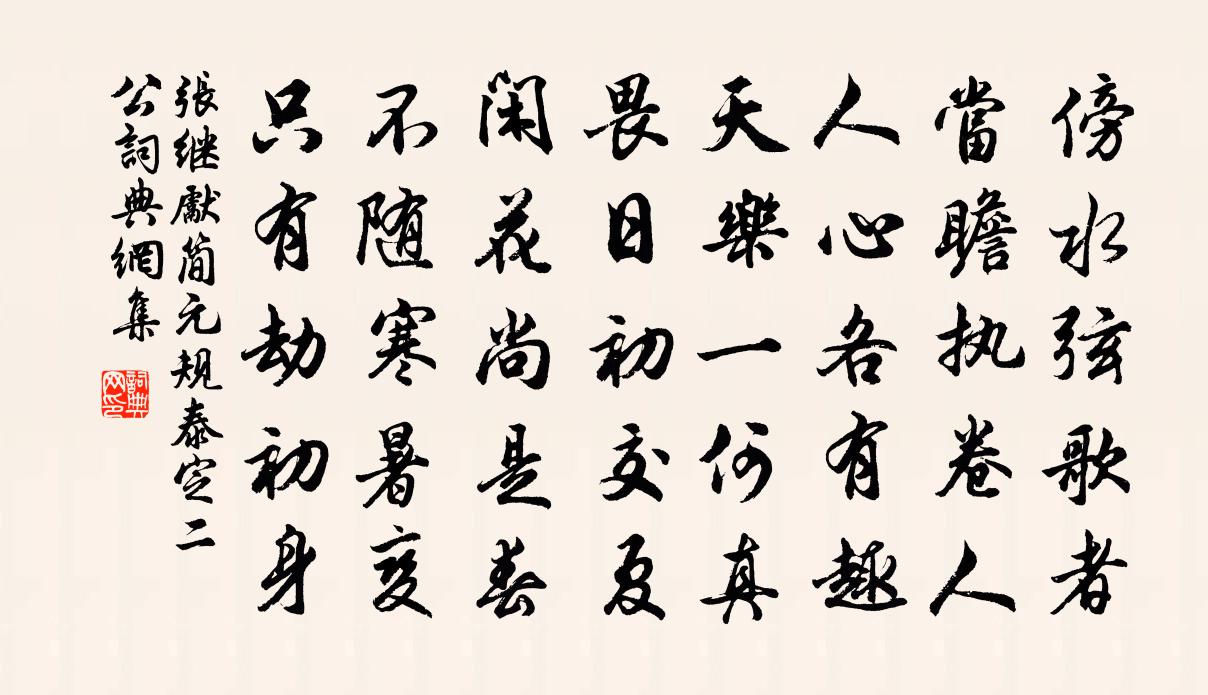 傍水弦歌者
當瞻执卷人
人心各有趣
天樂一何真
畏日初交夏
闲花尚是春
不随寒暑变
只有劫初身
張继獻簡元規泰定二
公詞典網集
詞典网印